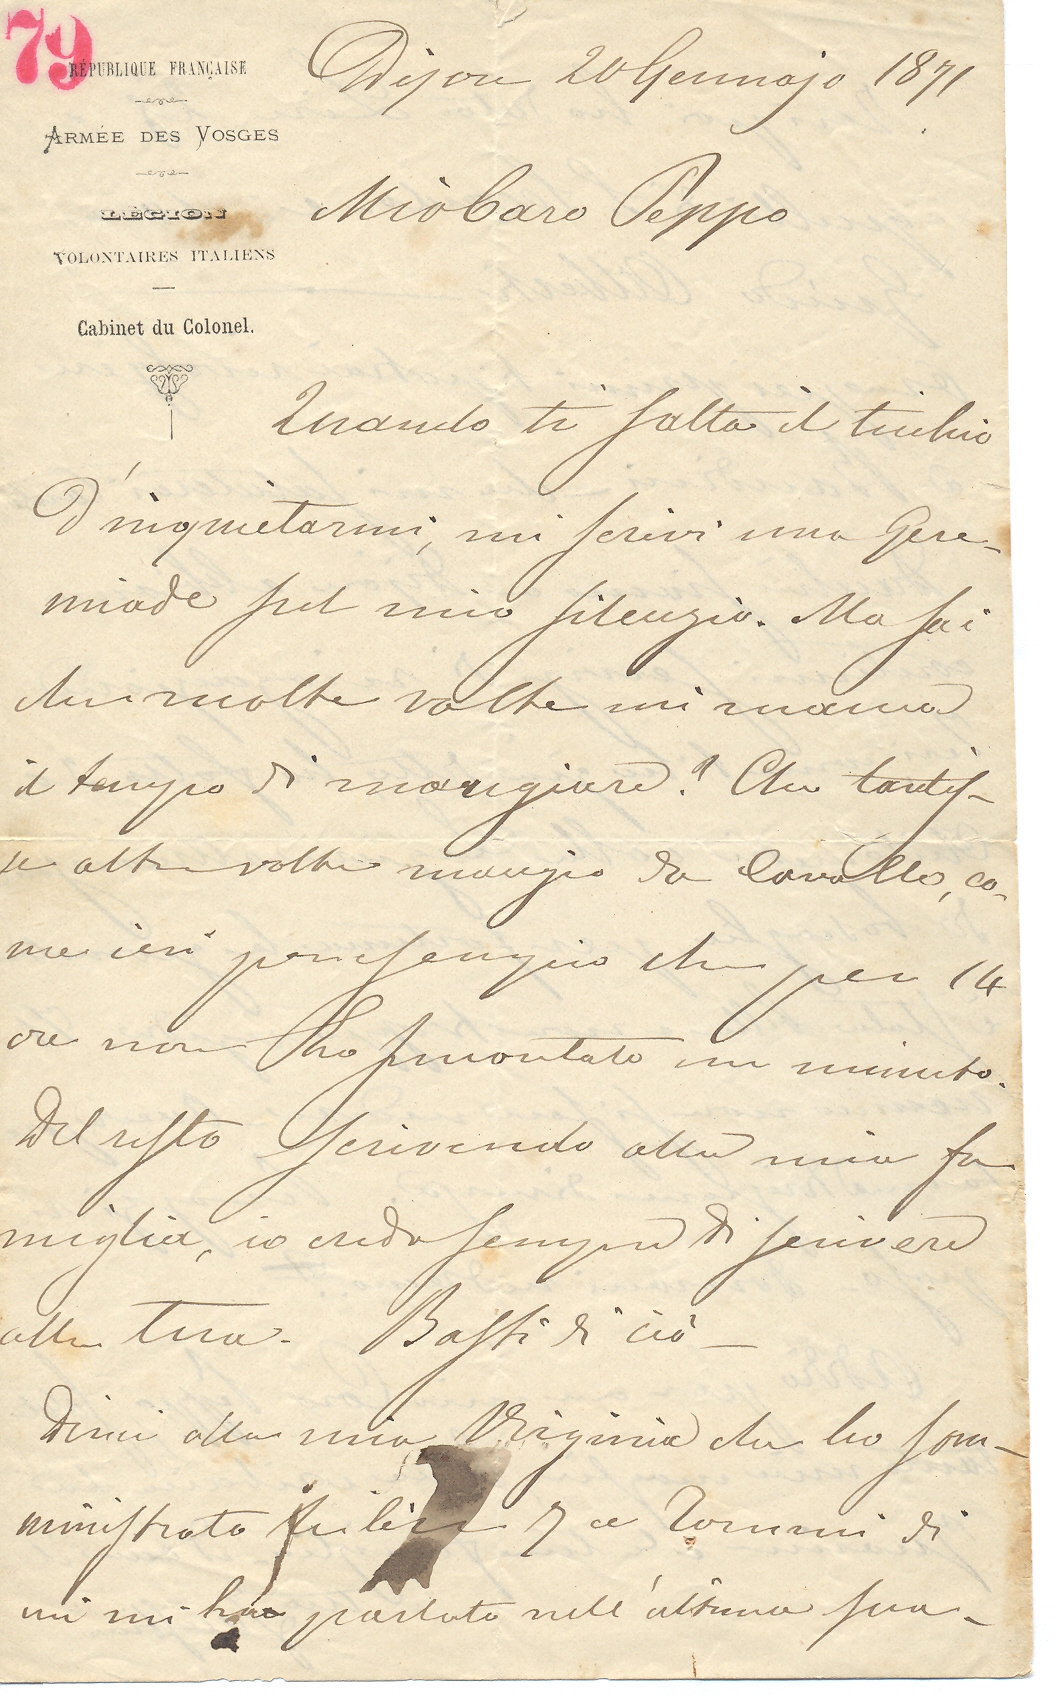 79
RÉPUBLIQUE FRANÇAISE
ARMÉE DES VOSGES
LÉGION
VOLONTAIRES ITALIENS
Cabinet du Colonel.
Dijon 20 Gennajo 1871
Mio Caro Peppo
Quando ti salta il ticchio
d'inquietarmi, mi scrivi una Gere-
miade sul mio silenzio. Ma sai
che molte volte mi manca
il tempo di mangiare? Che tantis-
se altre volte mangio da Cavallo, co-
me ieri per esempio che per 14
ore non ho smontato un minuto.
Del resto scrivendo alla mia fa
miglia, io credo sempre di scrivere
alla tua. Basti di ciò —
Dirai alla mia Virginia che ho som-
ministrato lire 7 a Tommi di
cui mi ha parlato nell'ultima sua -